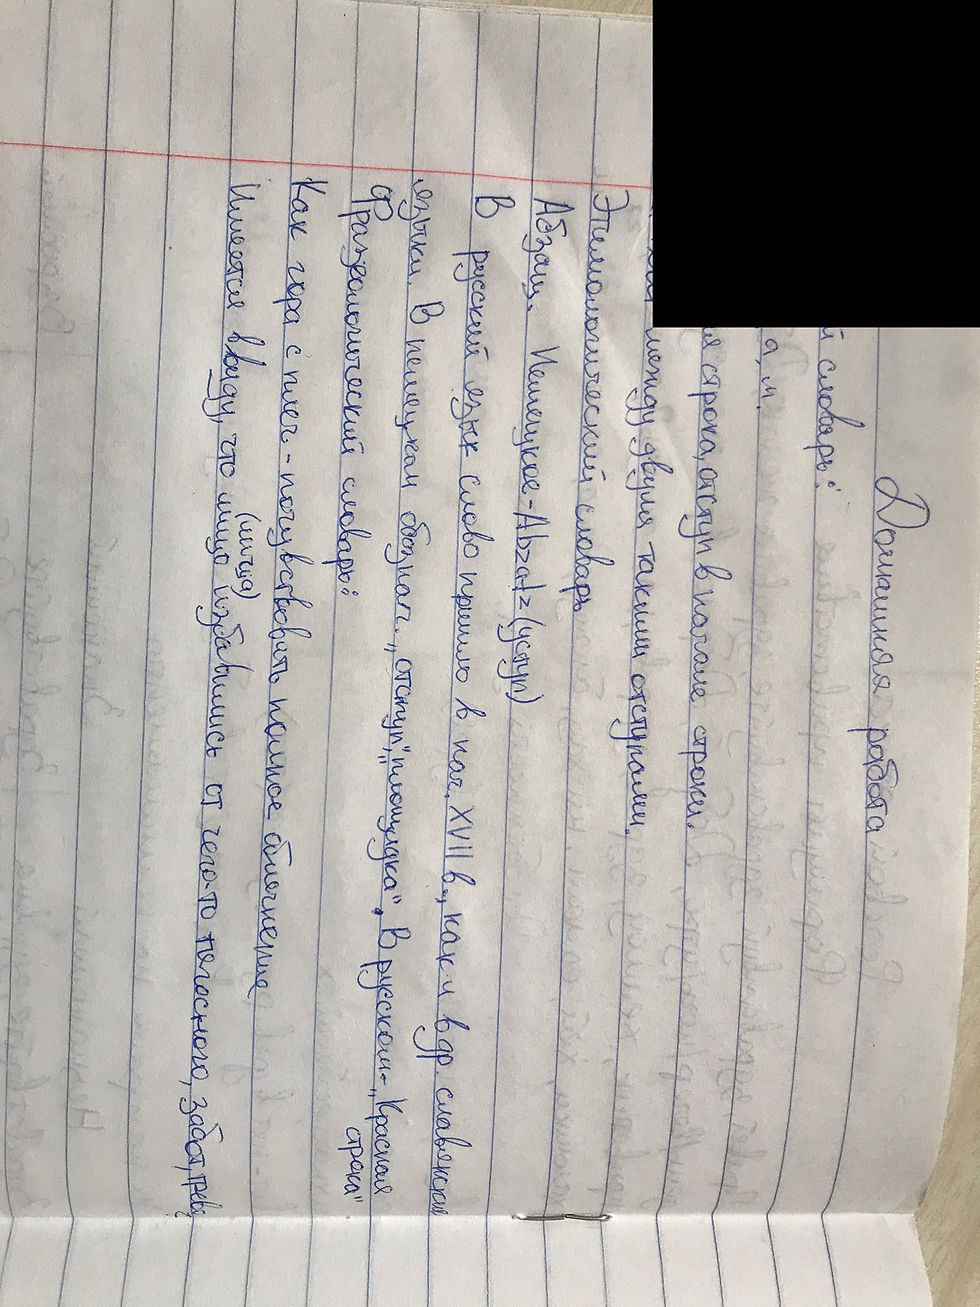 Домашняя работа
й словарь:
а, м.
я строка, отступ в начале строки.
между двумя такими отступами.
Этимологический словарь
Абзац. Немецкое - Abzatz (уступ)
В русский язык слово пришло в нач. XVII в., как и в др. славянские
языки. В немецком обознач. „отступ", „площадка". В русском - „Красная
строка"
Фразеологический словарь:
Как гора с плеч - почувствовать полное облегчение
Имеется ввиду, что лицо (лица) избавились от чего-то тягостного, забот,